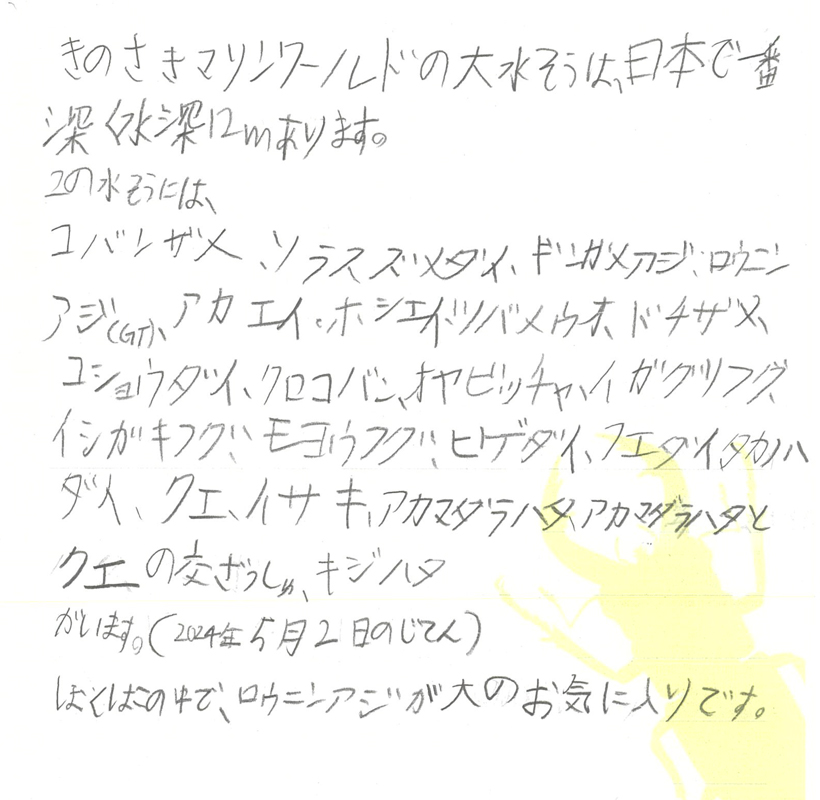 きのさきマリンワールドの大水そうは、日本で一番
深く水深12mあります。
この水そうには、
コバンザメ、ソラスズメダイ、ギンガメアジ、ロウニン
アジ(GT)、アカエイ、ホシエイ、ツバメウオ、ドチザメ、
コショウダイ、クロコバン、オヤビッチャ、イガグリフグ、
イシガキフグ、モヨウフグ、ヒゲダイ、フエダイ、タカノハ
ダイ、クエ、イサキ、アカマダラハタ、アカマダラハタと
クエの交ざっしゅ、キジハタ
がいます。(2024年5月2日のじてん)
ぼくはこの中で、ロウニンアジが大のお気に入りです。